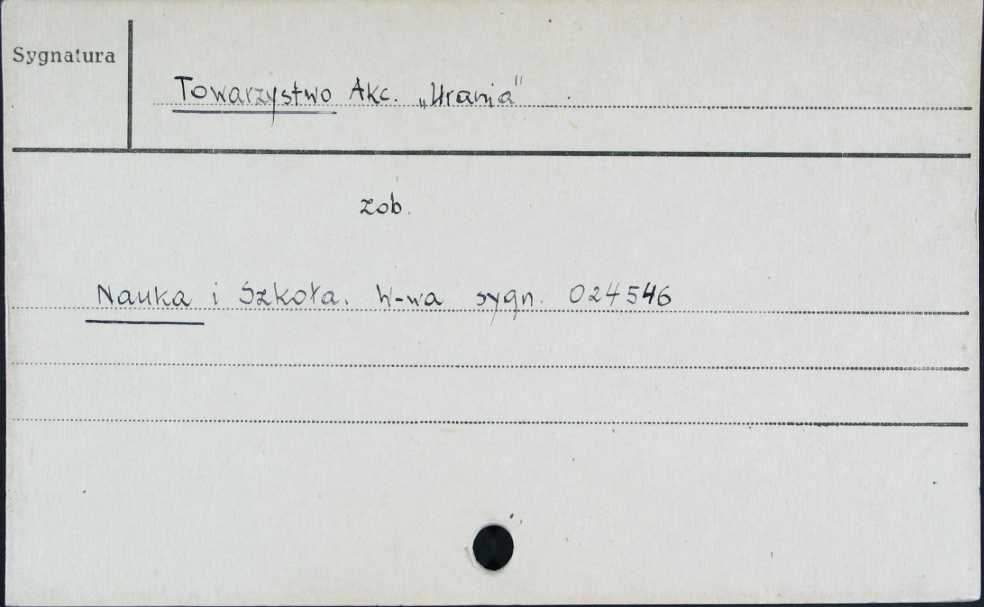 Sygnatura
Towarzystwo Akc. „Urania"
zob.
Nauka i Szkoła. W-wa sygn. 024546